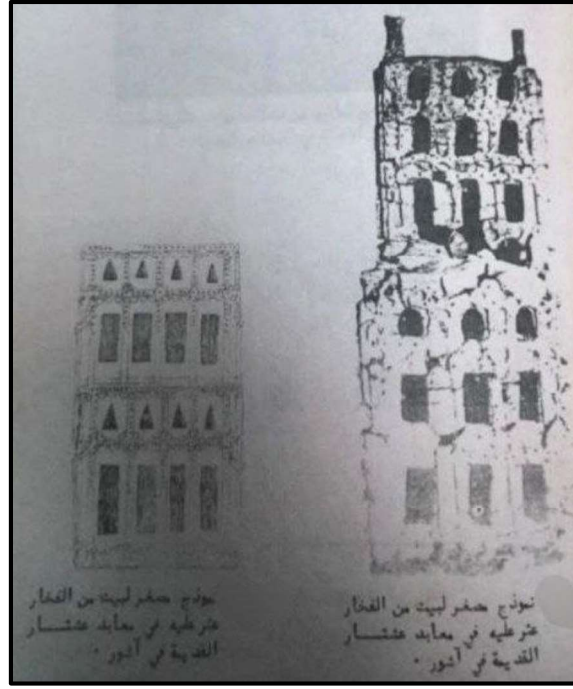 نموذج مصغر لبيت من الفخار
عثر عليه في معابد عشتــار
القديمة في آشور .
نموذج مصغر لبيت من الفخار
عثر عليه في معابد عشتــار
القديمة في آشور .